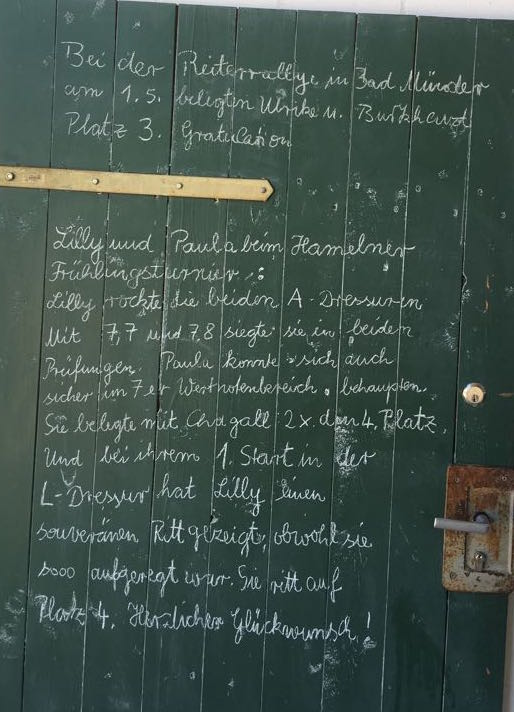 Bei der Reiterrallye in Bad Münder
am 1.5. belegten Ulrike u. Burkhard
Platz 3. Gratulation
Lilly und Paula beim Hamelner
Frühlingsturnier:
Lilly rockte die beiden A-Dressuren
Mit 7,7 und 7,8 siegte sie in beiden
Prüfungen. Paula konnte sich auch
sicher im 7er Wertnotenbereich behaupten.
Sie belegte mit Chagall 2x den 4. Platz.
Und bei ihrem 1. Start in der
L-Dressur hat Lilly einen
souveränen Ritt gezeigt, obwohl sie
sooo aufgeregt war. Sie ritt auf
Platz 4. Herzlichen Glückwunsch!